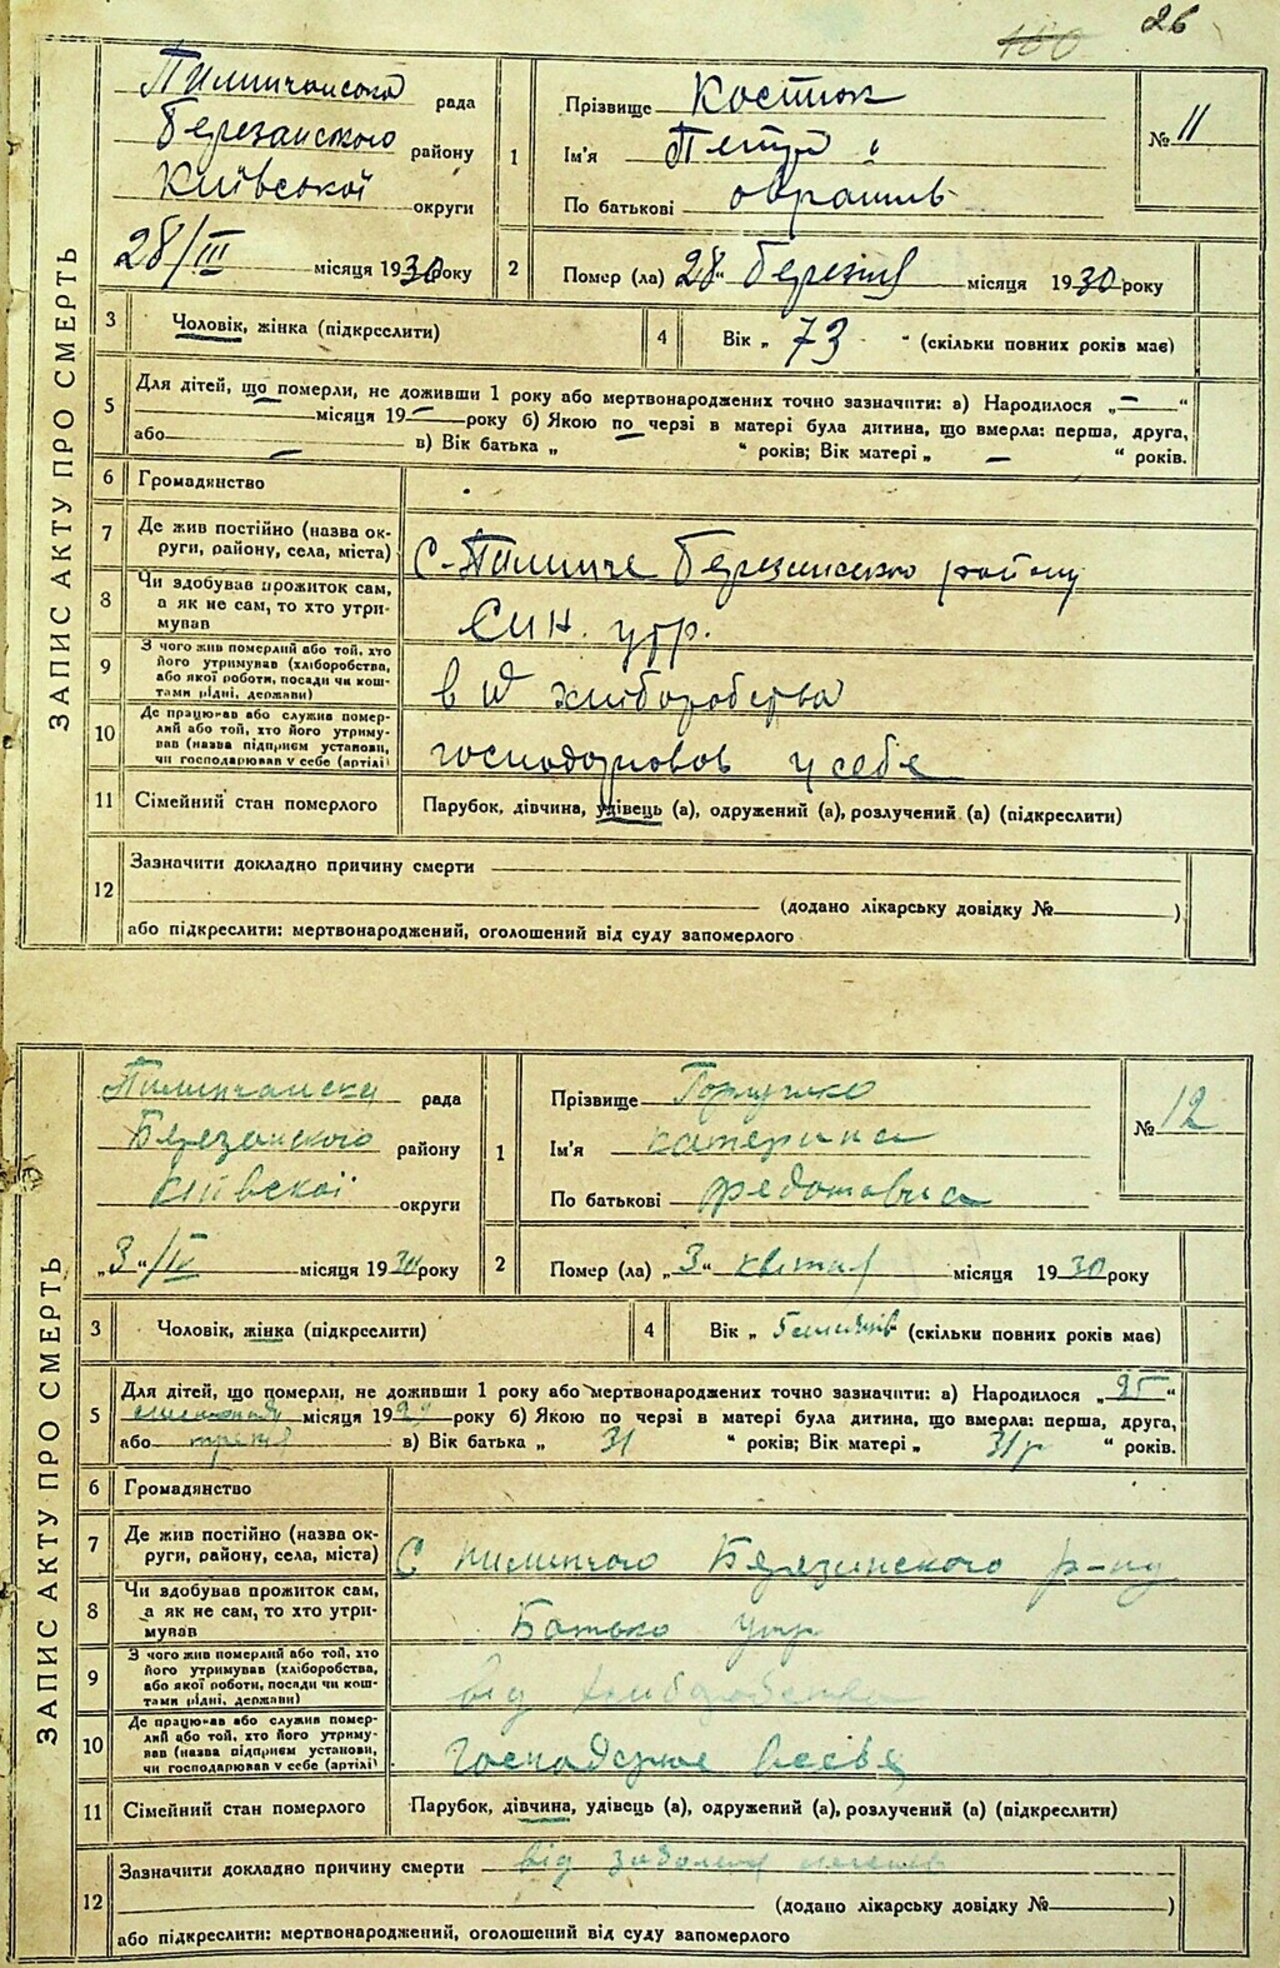 180 26
ЗАПИС АКТУ ПРО СМЕРТЬ
Пилипчанська рада
Березанського району
Київської округи
28/III місяця 1930 року
1
Прізвище Костюк
Ім'я Петро
По батькові
№ 11
2 Помер (ла) 28 " березня місяця 1930 року
3 Чоловік, жінка (підкреслити)
4 Вік „ 73 " (скільки повних років має)
5 Для дітей, що померли, не доживши 1 року або мертвонароджених точно зазначити: а) Народилося „ — "
місяця 19 — року б) Якою по черзі в матері була дитина, що вмерла: перша, друга,
або — в) Вік батька „ " років; Вік матері „ — " років.
6 Громадянство
7 Де жив постійно (назва ок-
руги, району, села, міста)
С-Пилипче Березанського району
8 Чи здобував прожиток сам,
а як не сам, то хто утри-
мував
Син. утр.
9 З чого жив померлий або той, хто
його утримував (хліборобства,
або якої роботи, посади чи кош-
тами рідні, держави)
від хліборобства
10 Де працював або служив помер-
лий або той, хто його утриму-
вав (назва підприєм установи,
чи господарював у себе (артілі)
господарював у себе
11 Сімейний стан померлого
Парубок, дівчина, удівець (а), одружений (а), розлучений (а) (підкреслити)
12 Зазначити докладно причину смерти
(додано лікарську довідку № )
або підкреслити: мертвонароджений, оголошений від суду запомерлого
ЗАПИС АКТУ ПРО СМЕРТЬ
Пилипчанська рада
Березанського району
Київскої округи
„3"/IV місяця 1930 року
1
Прізвище
Ім'я катерина
По батькові федотовна
№ 12
2 Помер (ла) „3" квітня місяця 1930 року
3 Чоловік, жінка (підкреслити)
4 Вік „ 5 місяців " (скільки повних років має)
5 Для дітей, що померли, не доживши 1 року або мертвонароджених точно зазначити: а) Народилося „ 25 "
листопаду місяця 1929 року б) Якою по черзі в матері була дитина, що вмерла: перша, друга,
або третя в) Вік батька „ 31 " років; Вік матері „ 31 р " років.
6 Громадянство
7 Де жив постійно (назва ок-
руги, району, села, міста)
С Березинского р-ну
8 Чи здобував прожиток сам,
а як не сам, то хто утри-
мував
Батько утр
9 З чого жив померлий або той, хто
його утримував (хліборобства,
або якої роботи, посади чи кош-
тами рідні, держави)
від хліборобства
10 Де працював або служив помер-
лий або той, хто його утриму-
вав (назва підприєм установи,
чи господарював у себе (артілі)
11 Сімейний стан померлого
Парубок, дівчина, удівець (а), одружений (а), розлучений (а) (підкреслити)
12 Зазначити докладно причину смерти від
(додано лікарську довідку № )
або підкреслити: мертвонароджений, оголошений від суду запомерлого